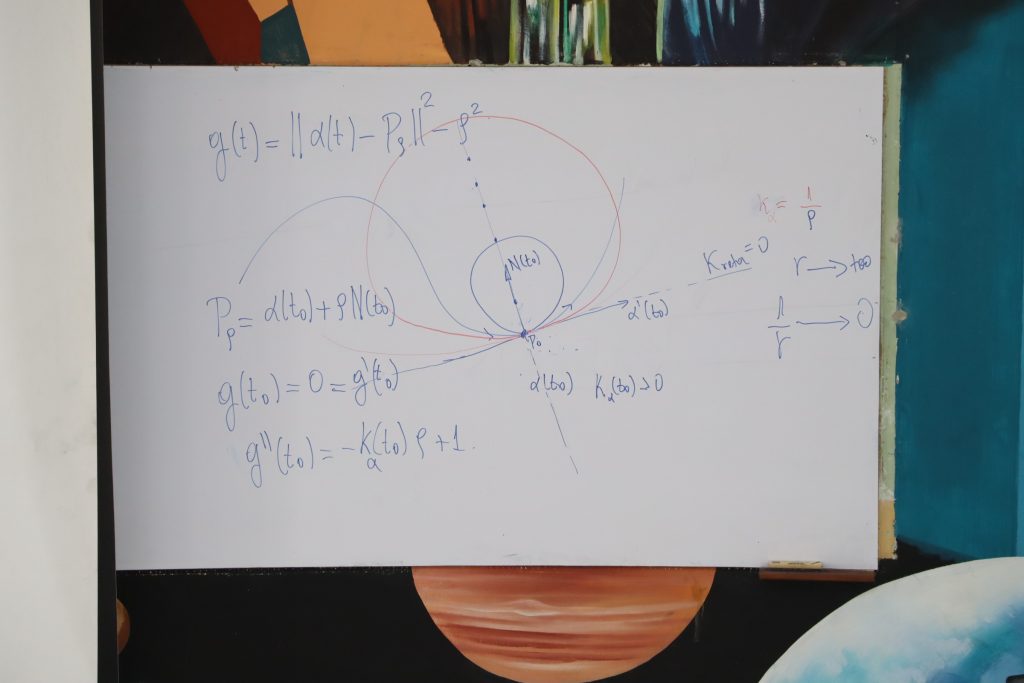 g(t) = || α(t) − Pρ ||² − ρ²
Kα = 1/ρ
N(t₀)
Kreta = 0
r → +∞
Pρ = α(t₀) + ρN(t₀)
α'(t₀)
1/r → 0
P₀
g(t₀) = 0 = g'(t₀)
α(t₀) Kα(t₀) > 0
g''(t₀) = −kα(t₀) ρ + 1.